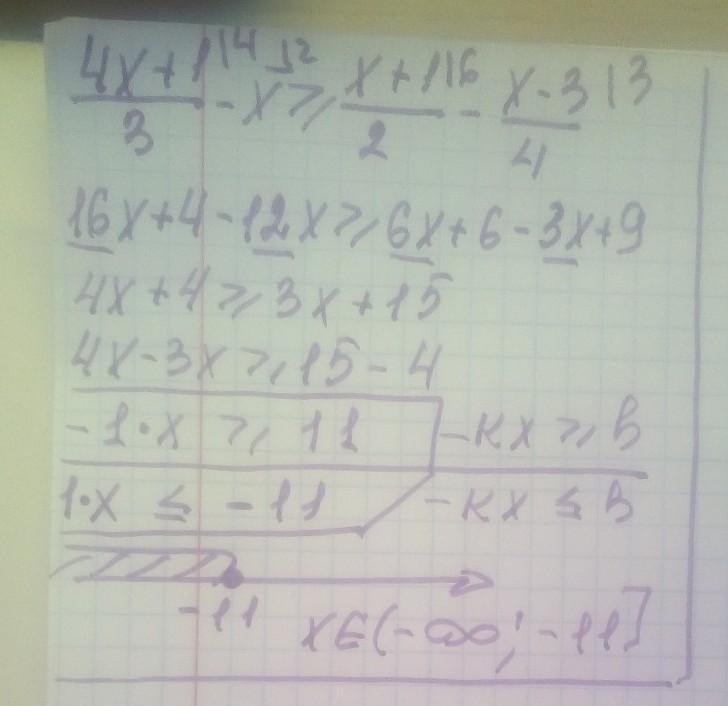 (4x+1)/3 |4 - x |12 ⩾ (x+1)/2 |6 - (x-3)/4 |3
16x+4-12x⩾6x+6-3x+9
4x+4⩾3x+15
4x-3x⩾15-4
-1·x ⩾ 11 -кx ⩾ в
1·x ≤ -11 -кx ≤ в
-11
x∈(-∞; -11]